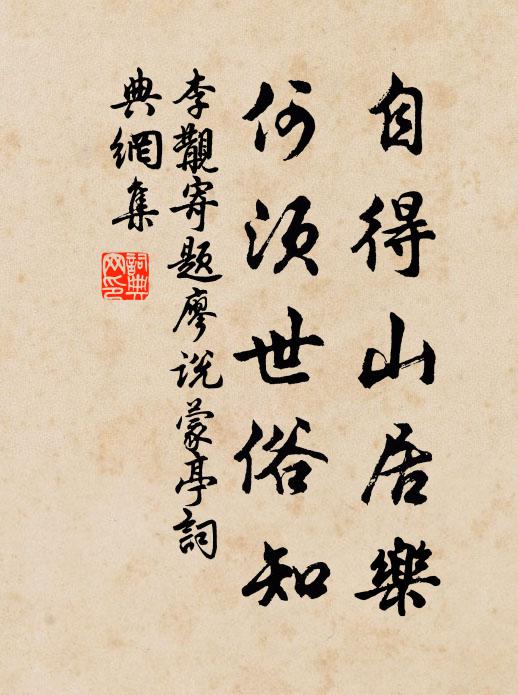 自得山居樂
何須世俗知
李覯寄題廖說蒙亭詞
典網集
詞典网印